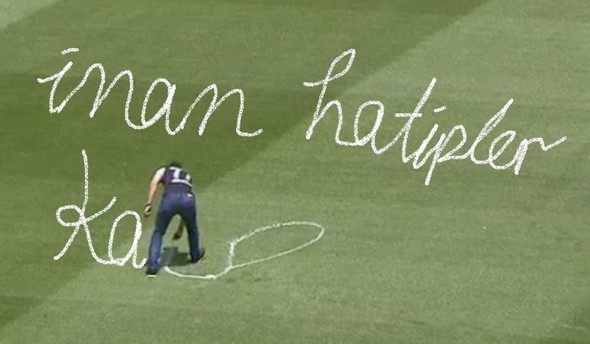 inan hatipler
Ka